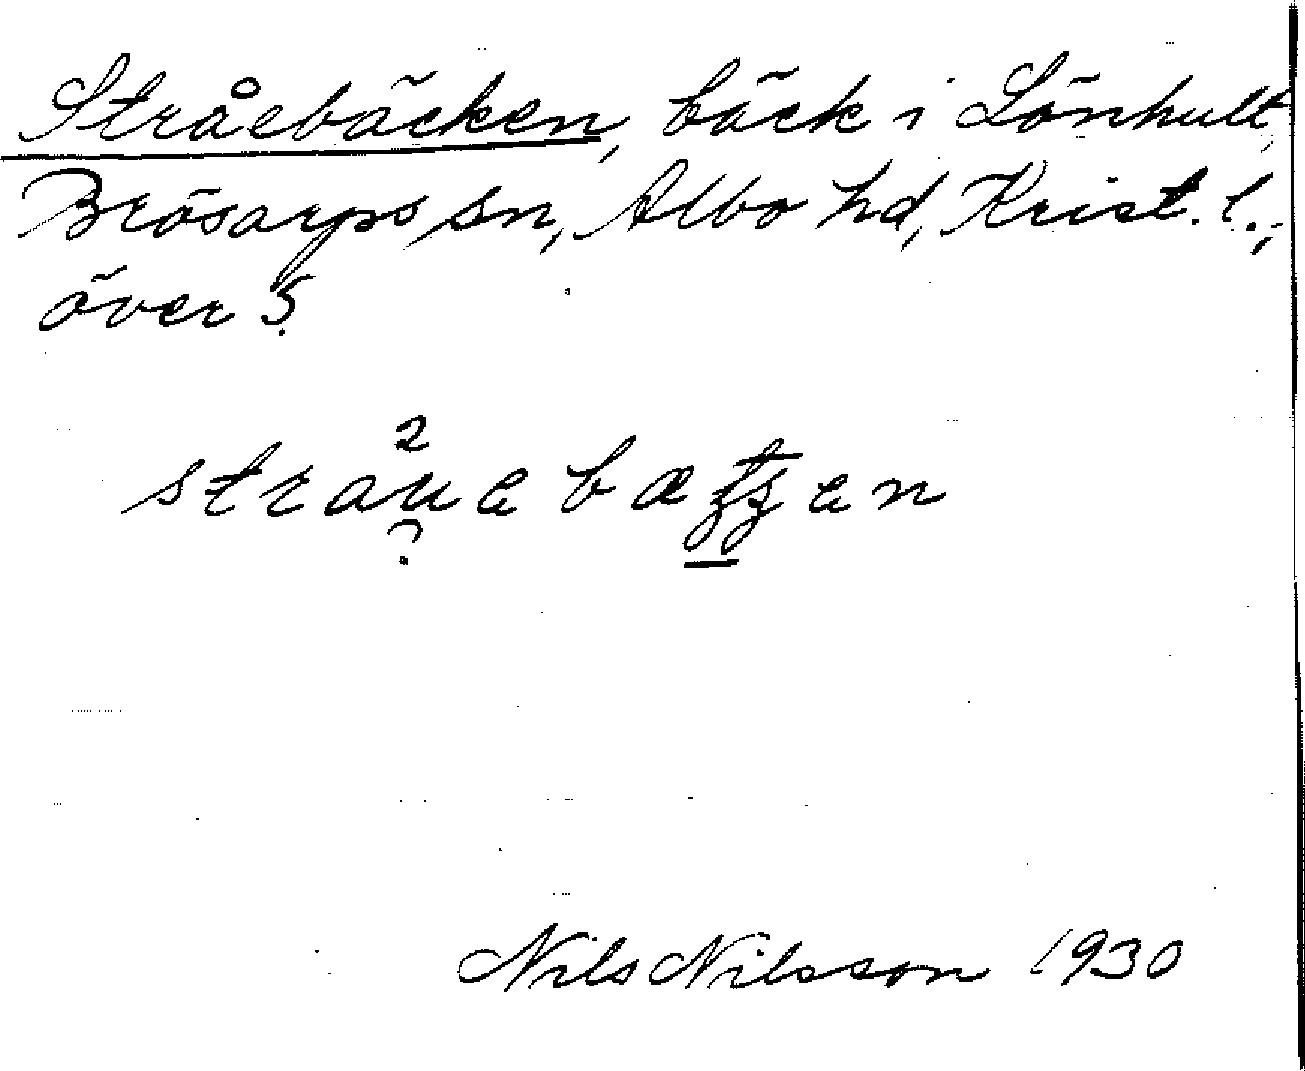 Stråebäcken, bäck i Lönhult,
Brösarps sn, Albo hd, Krist. l.,
över 5.
2
strauebæʒʒen
?
Nils Nilsson 1930